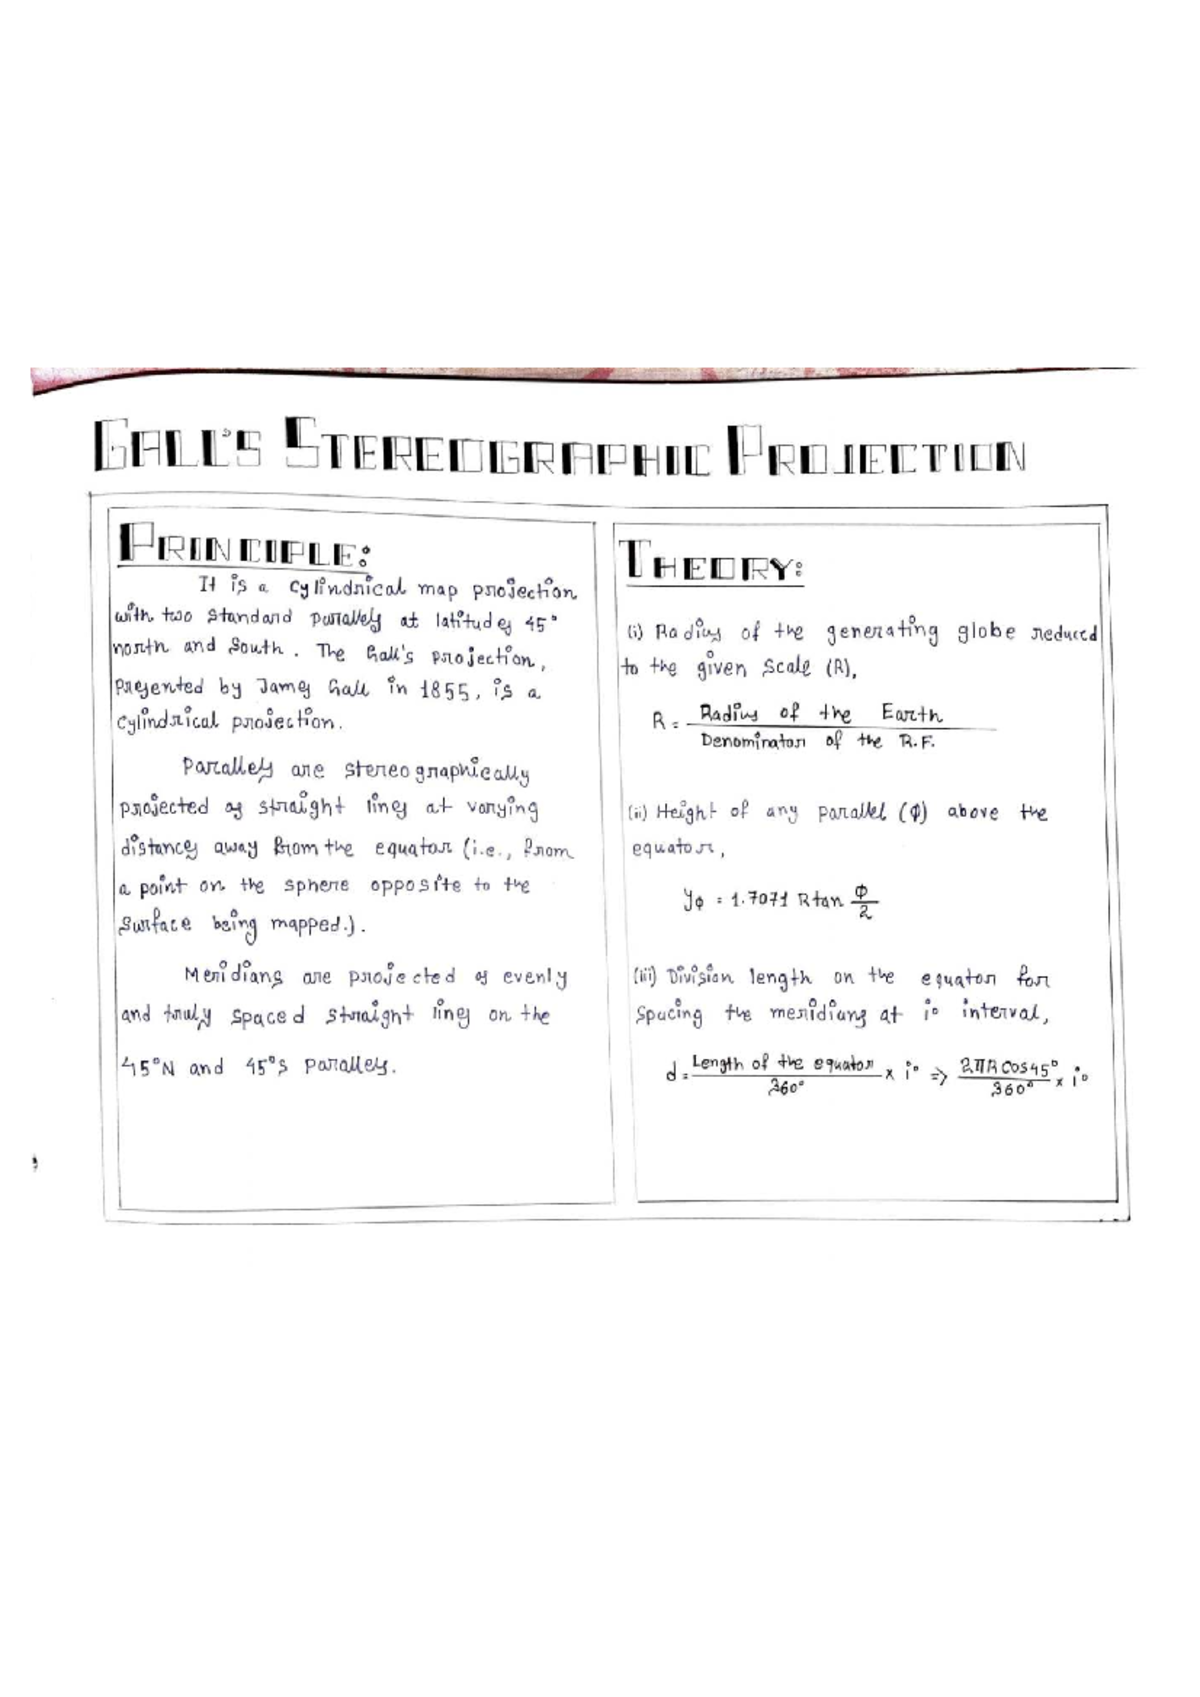 GALL'S STEREOGRAPHIC PROJECTION
PRINCIPLE:
It is a cylindrical map projection
with two standard parallels at latitudes 45°
north and South. The Gall's projection,
Presented by James Gall in 1855, is a
cylindrical projection.
Parallels are stereographically
projected as straight lines at varying
distances away from the equator (i.e., from
a point on the sphere opposite to the
surface being mapped.).
Meridians are projected as evenly
and truly spaced straight lines on the
45°N and 45°S Parallels.
THEORY:
(i) Radius of the generating globe reduced
to the given scale (R),
R = Radius of the Earth / Denominator of the R.F.
(ii) Height of any parallel (Φ) above the
equator,
yΦ = 1.7071 R tan Φ/2
(iii) Division length on the equator for
spacing the meridians at i° interval,
d = Length of the equator / 360° × i° ⇒ 2πR cos45° / 360° × i°